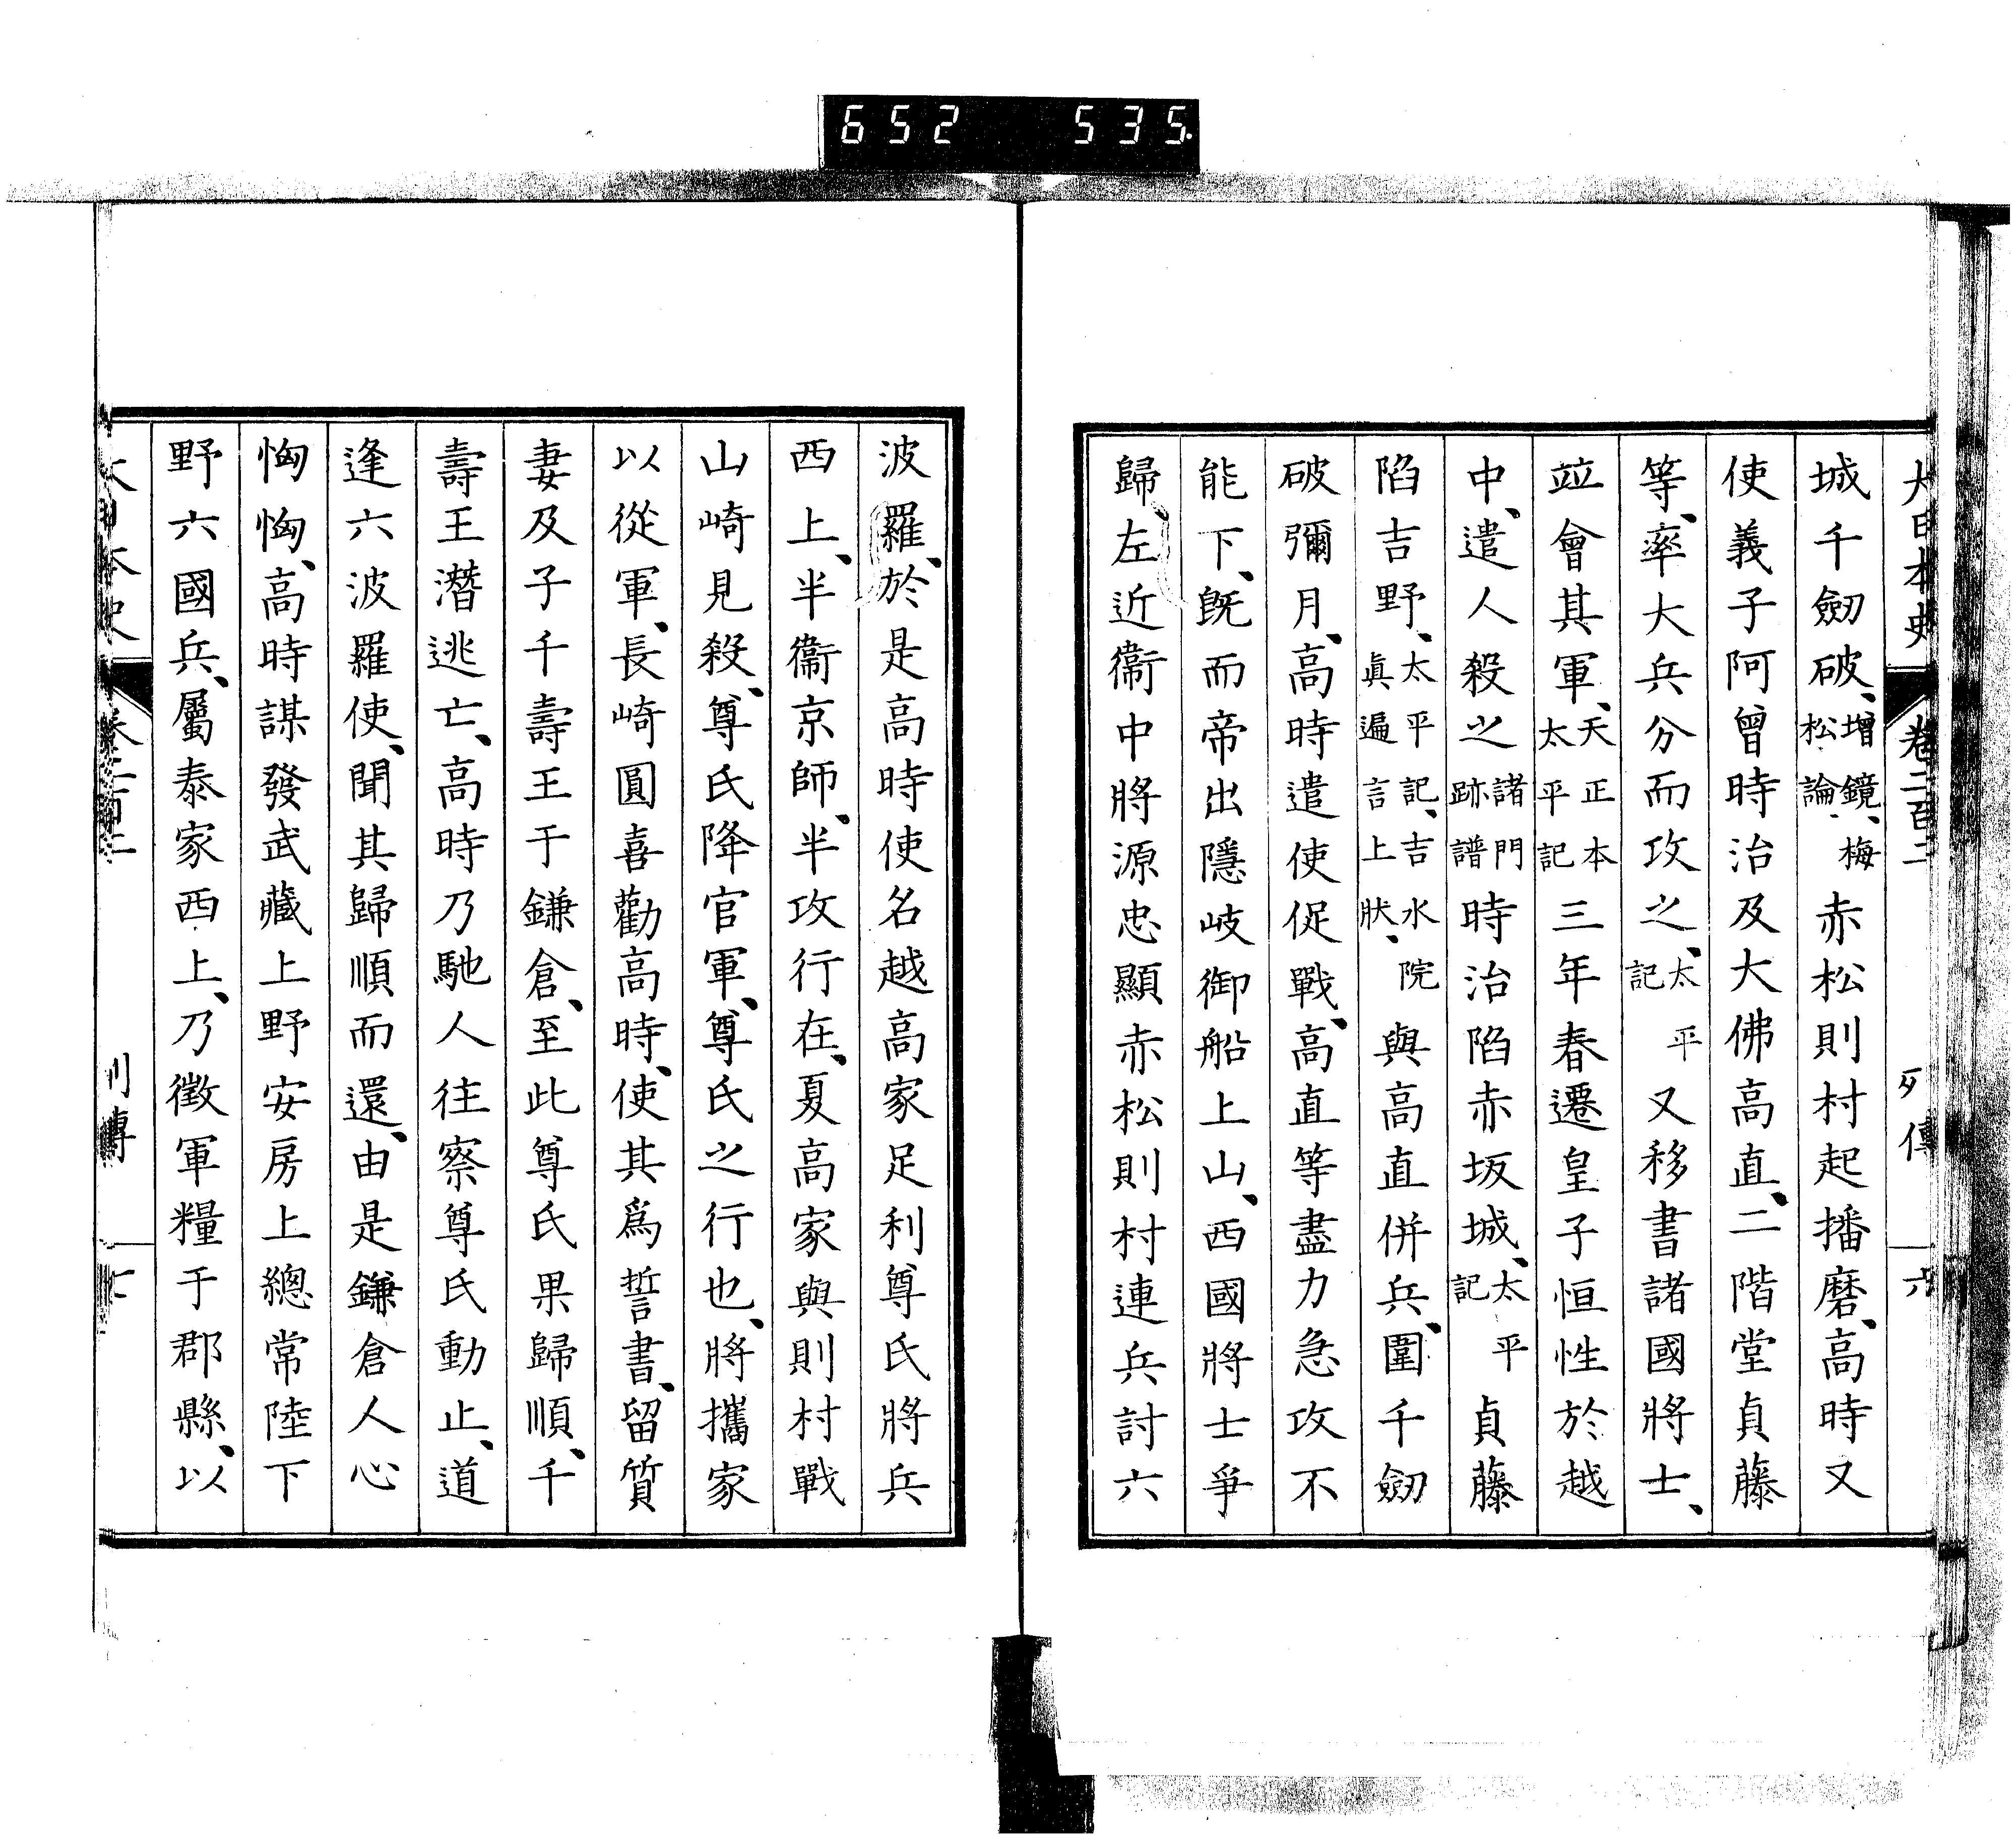 652 535.
大日本史 卷二百二 列傳 六
城千劒破、增鏡、梅松論、赤松則村起播磨、高時又
使義子阿曾時治及大佛高直、二階堂貞藤
等、率大兵分而攻之、太平記又移書諸國將士、
竝會其軍、天正本太平記三年春遷皇子恒性於越
中、遣人殺之諸門跡譜時治陷赤坂城、太平記貞藤
陷吉野、太平記、吉水院眞遍言上狀、與高直併兵、圍千劒
破彌月、高時遣使促戰、高直等盡力急攻不
能下、旣而帝出隱岐御船上山、西國將士爭
歸、左近衞中將源忠顯赤松則村連兵討六
波羅、於是高時使名越高家足利尊氏將兵
西上、半衞京師、半攻行在、夏高家與則村戰
山崎見殺、尊氏降官軍、尊氏之行也、將攜家
以從軍、長崎圓喜勸高時、使其爲誓書、留質
妻及子千壽王于鎌倉、至此尊氏果歸順、千
壽王潛逃亡、高時乃馳人往察尊氏動止、道
逢六波羅使、聞其歸順而還、由是鎌倉人心
恟恟、高時謀發武藏上野安房上總常陸下
野六國兵、屬泰家西上、乃徵軍糧于郡縣、以
大日本史 卷二百二 列傳 七